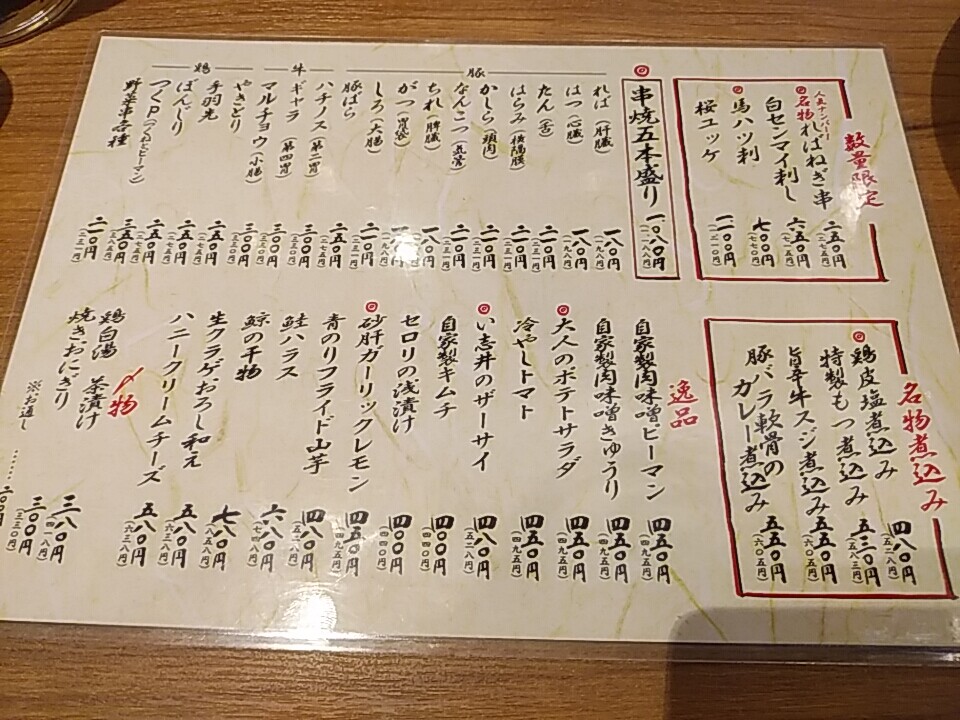 数量限定
人気ナンバー1
名物 ればねぎ串 二五〇円 (二七五円)
白センマイ刺し 六五〇円 (七一五円)
馬ハツ刺 七〇〇円
桜ユッケ
串焼五本盛り 一〇八〇円 (一一八八円)
豚
れば (肝臓) 一八〇円 (一九八円)
はつ (心臓) 一八〇円 (一九八円)
たん (舌) 二一〇円 (二三一円)
はらみ (横隔膜) 二一〇円 (二三一円)
かしら (頭肉) 二一〇円 (二三一円)
なんこつ (気管) 二一〇円 (二三一円)
ちれ (脾臓) 一八〇円
がつ (胃袋)
しろ (大腸) 一八〇円 (一九八円)
豚ばら 二一〇円 (二三一円)
牛
ハチノス (第二胃) 二五〇円 (二七五円)
ギャラ (第四胃) 三〇〇円 (三三〇円)
マルチョウ (小腸) 三〇〇円 (三三〇円)
鶏
やきとり
手羽先 二五〇円 (二七五円)
ぼんじり 二五〇円 (二七五円)
つくP (つくねとピーマン) 三五〇円 (三八五円)
野菜串各種 二一〇円 (二三一円)
名物煮込み
鶏皮塩煮込み 四八〇円 (五二八円)
特製もつ煮込み 五三〇円 (五八三円)
旨辛牛スジ煮込み 五五〇円 (六〇五円)
豚バラ軟骨の
カレー煮込み 五五〇円 (六〇五円)
逸品
自家製肉味噌ピーマン 四五〇円 (四九五円)
自家製肉味噌きゅうり 四五〇円 (四九五円)
大人のポテトサラダ 四五〇円 (四九五円)
冷やしトマト 四五〇円 (四九五円)
い志井のザーサイ 四八〇円 (五二八円)
自家製キムチ 四〇〇円 (四四〇円)
セロリの浅漬け 四〇〇円 (四四〇円)
砂肝ガーリックレモン 四五〇円 (四九五円)
青のりフライド山芋 四五〇円 (四九五円)
鮭ハラス 四八〇円 (五二八円)
鯨の干物 六八〇円 (七四八円)
生クラゲおろし和え 七八〇円 (八五八円)
ハニークリームチーズ 五八〇円 (六三八円)
〆物
鶏白湯 茶漬け 三八〇円 (四一八円)
焼きおにぎり 三〇〇円 (三三〇円)
※お通し ……